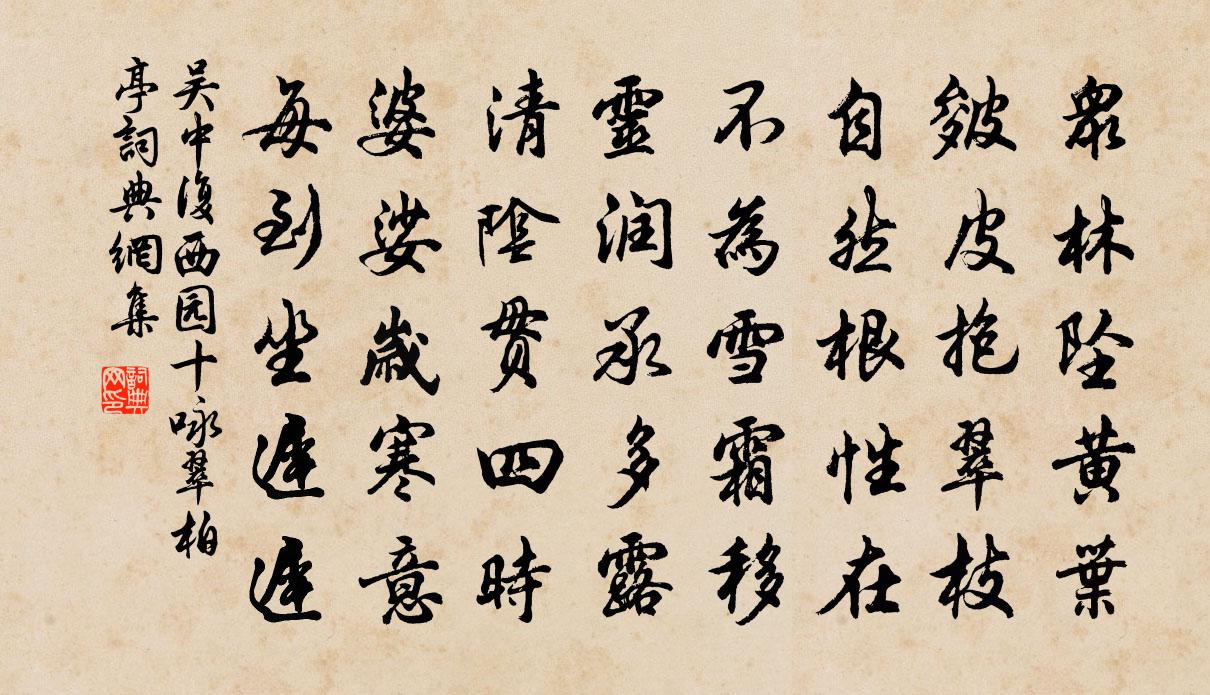 衆林坠黄葉
皺皮抱翠枝
自然根性在
不為雪霜移
靈润承多露
清陰貫四時
婆娑歲寒意
每到坐遲遲
吴中復西园十咏翠柏
亭詞典網集
詞典网印